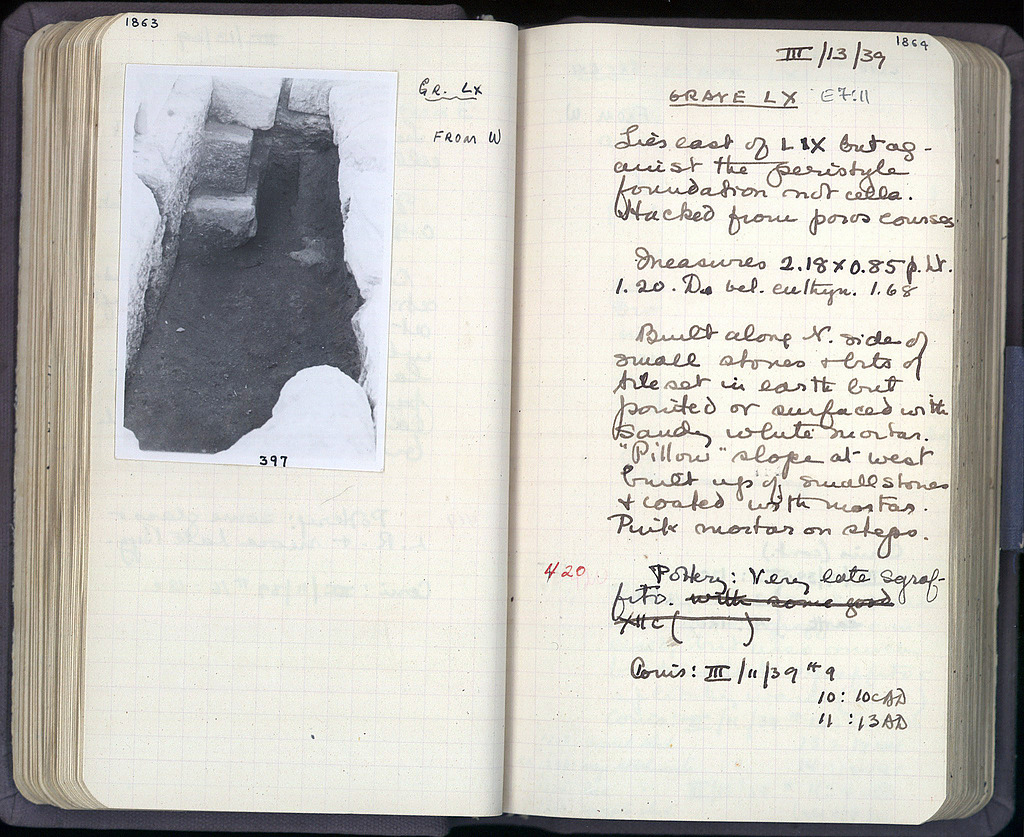 1863
Gr. LX
FROM W
397
1864
III/13/39
GRAVE LX E7:11
Lies east of LIX but ag-
ainst the peristyle
foundation not cella.
Hacked from poros courses
Measures 2.18 x 0.85 p. ht.
1.20. D. bel. euthyn. 1.68
Built along N. side of
small stones + bits of
tile set in earth but
pointed or surfaced with
sandy white mortar.
"Pillow" slope at west
built up of small stones
+ coated with mortar.
Pink mortar on steps.
420 Pottery: Very late sgraf-
fito. with some good
XII c ( )
Coins: III/11/39 #9
10: 10 c AD
11 : 13 AD